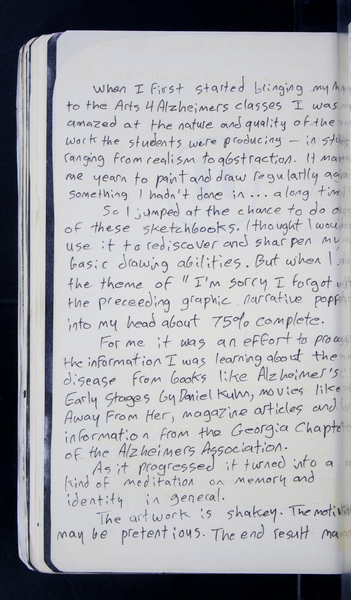 When I first started bringing my
to the Arts 4 Alzheimers classes I was
amazed at the nature and quality of the
work the students were producing – in
ranging from realism to abstraction. It
me yearn to paint and draw regularlly
something I hadn't done in ... along
So I jumped at the chance to do
of these sketchbooks. I thought I
use it to rediscover and sharpen my
basic drawing abilities. But when I
the theme of "I'm sorry I forgot
the preceeding graphic narrative
into my head about 75% complete.
For me it was an effort to
the information I was learning about the
disease from books like Alzheimer's
Early Stages by Daniel Kuhn, movies like
Away From Her, magazine articles and
information from the Georgia
of the Alzheimers Association.
As it progressed it turned into a
kind of meditation on memory and
identity in general.
The artwork is shakey. The
may be pretentious. The end result